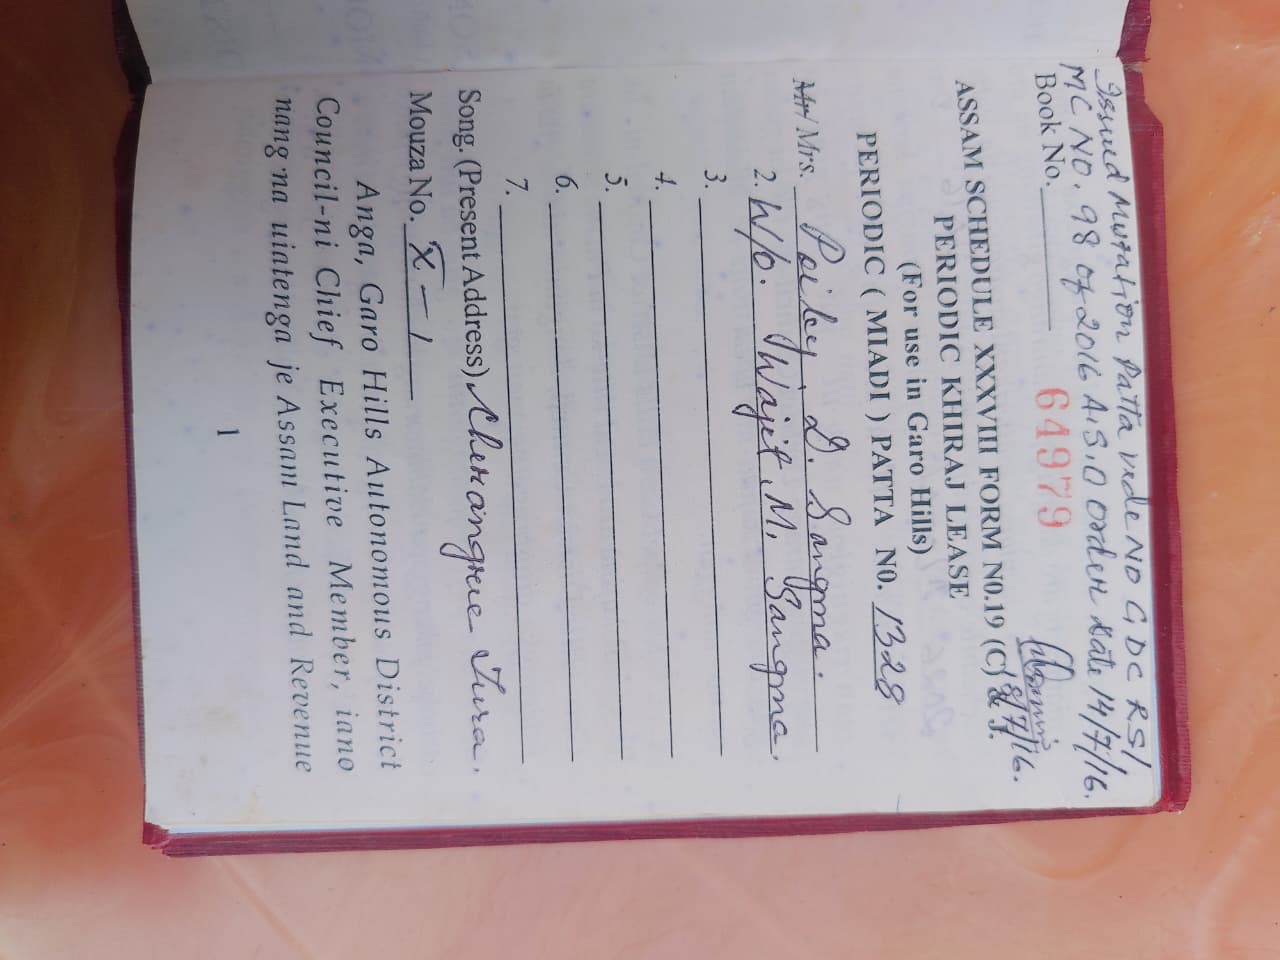 Issued Mutation Patta vide No GDC RS/
MC NO. 98 of 2016 A.S.O Order date 14/7/16.
Book No. 64979
18/7/16.
ASSAM SCHEDULE XXXVIII FORM N0.19 (C) & J.
PERIODIC KHIRAJ LEASE
(For use in Garo Hills)
PERIODIC ( MIADI ) PATTA N0. 1328
Mr/ Mrs. D. Sangma.
2. W/o. Wajit M. Sangma.
3.
4.
5.
6.
7.
Song. (Present Address) Tura.
Mouza No. X-1
Anga, Garo Hills Autonomous District
Council-ni Chief Executive Member, iano
nang'na uiatenga je Assam Land and Revenue
1